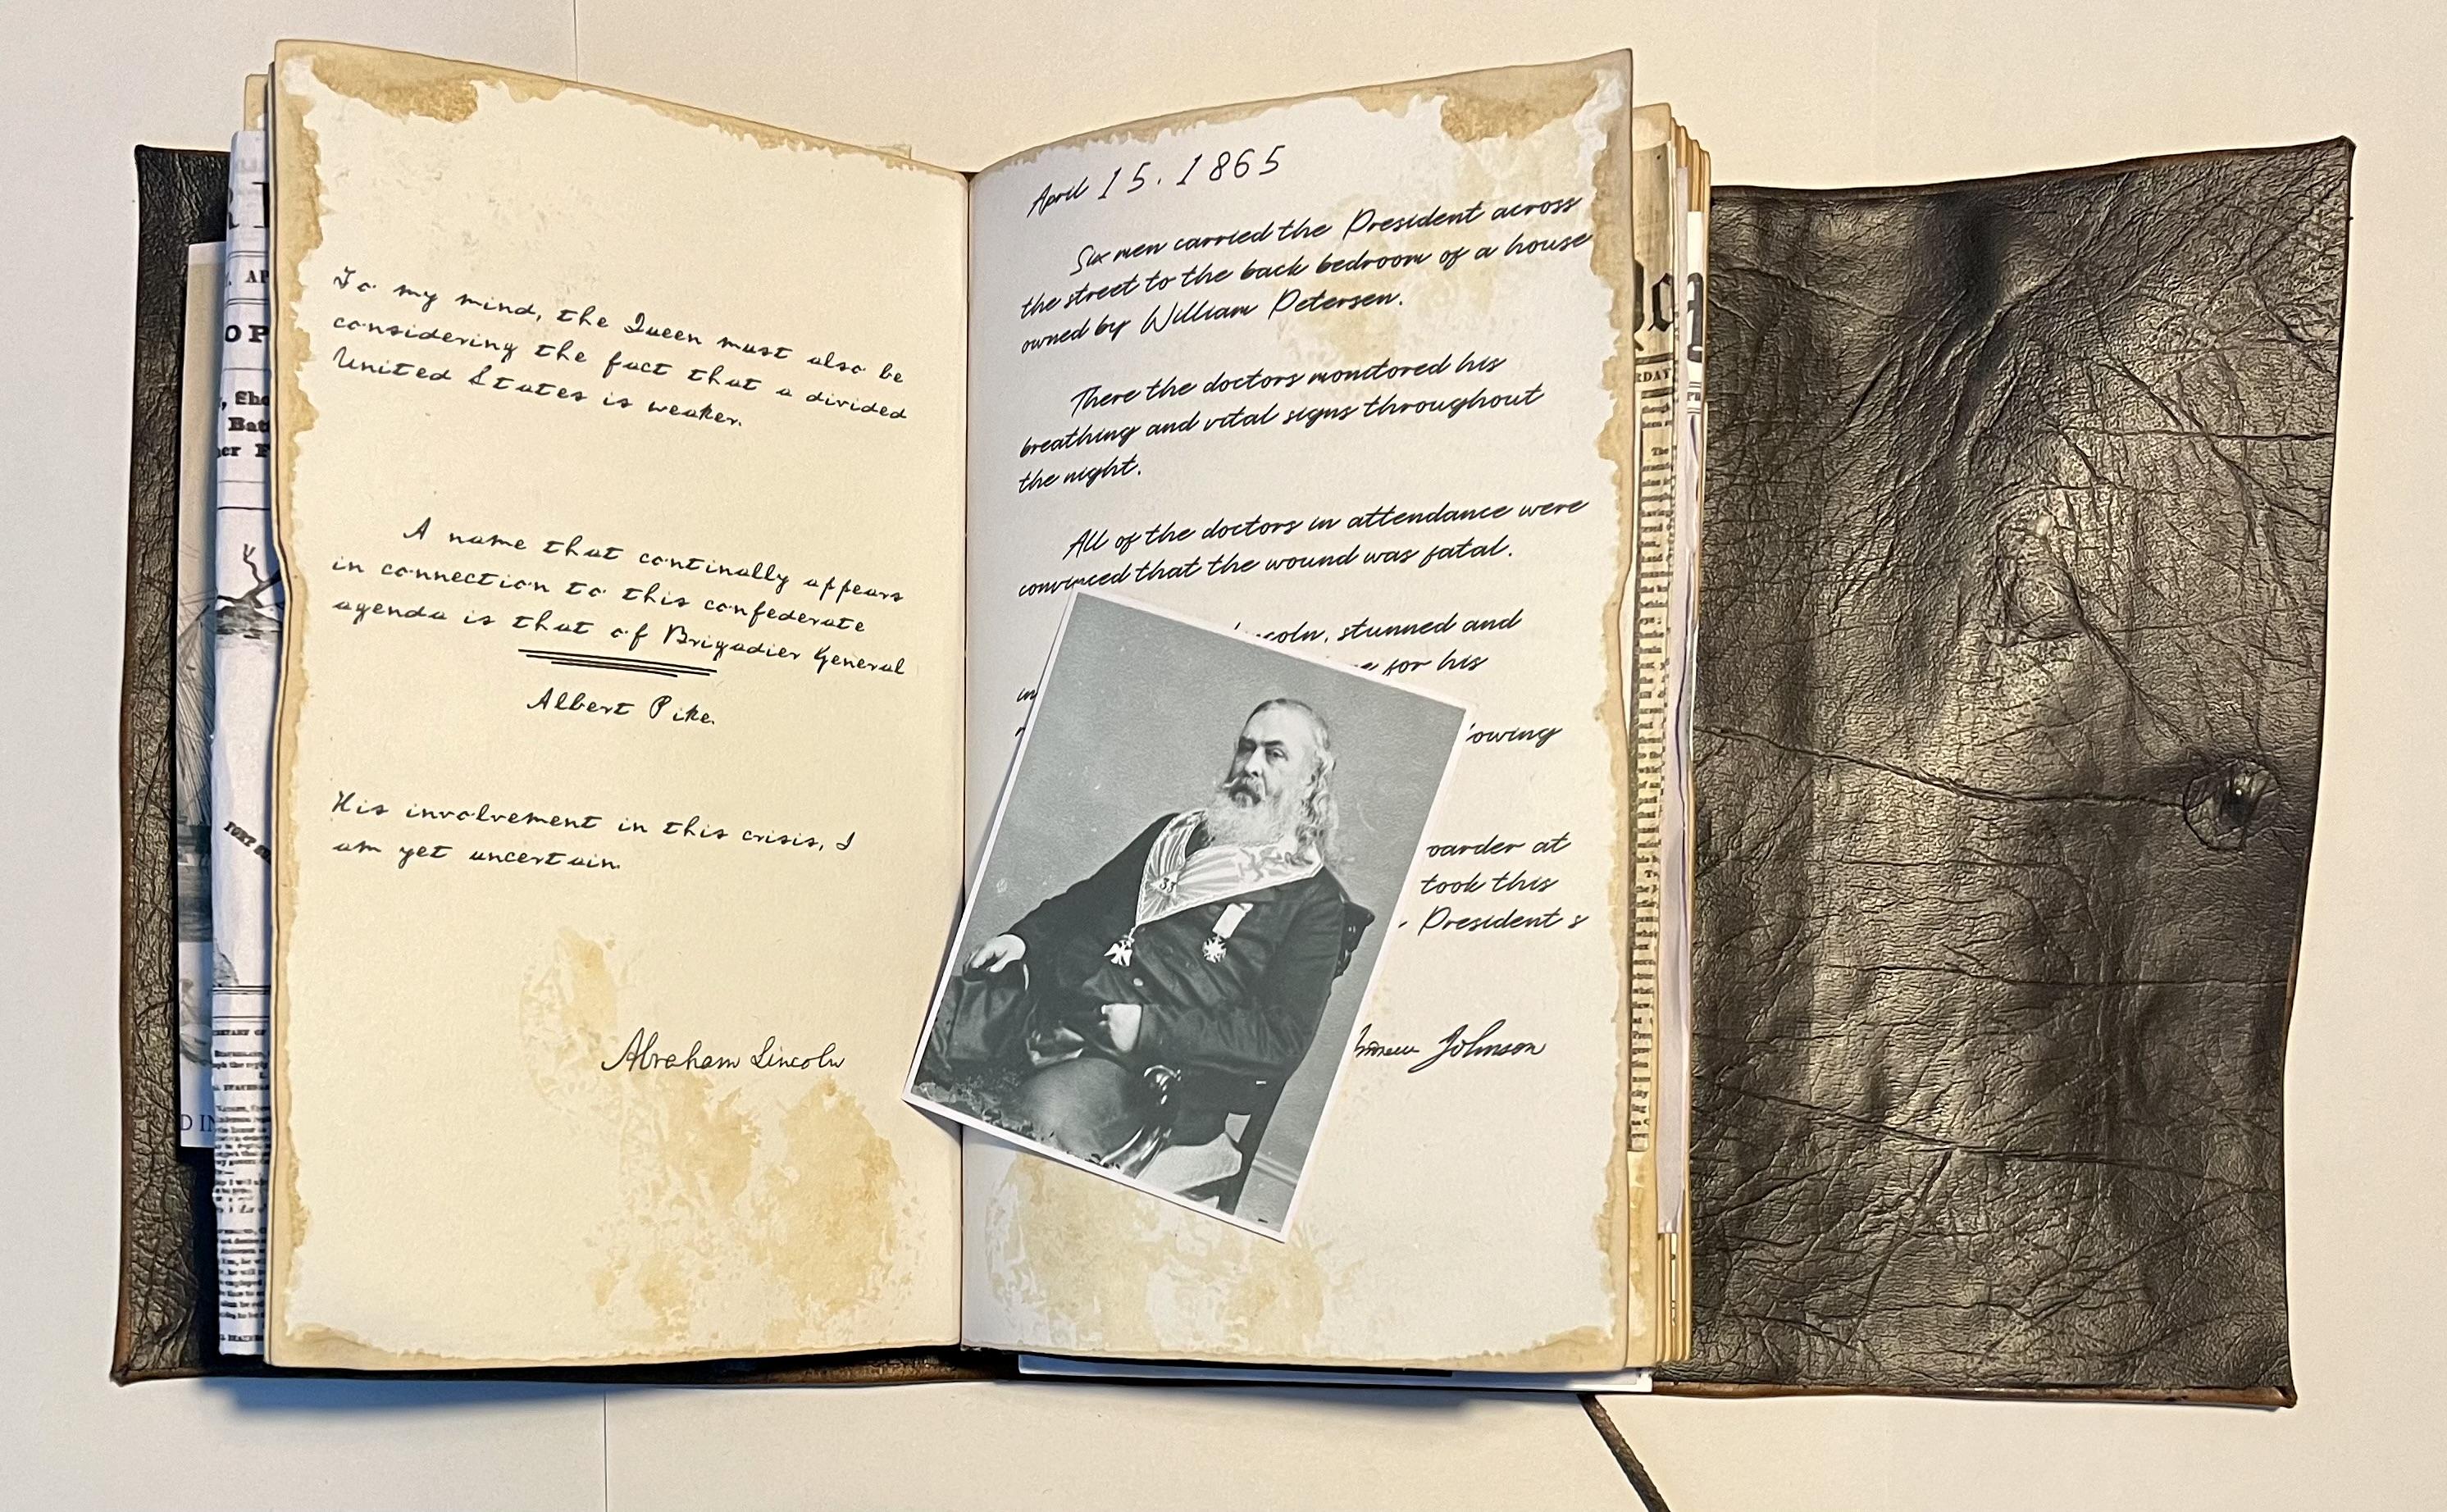 To my mind, the Queen must also be
considering the fact that a divided
United States is weaker.
A name that continally appears
in connection to this confederate
agenda is that of Brigadier General
Albert Pike.
His involvement in this crisis, I
am yet uncertain.
Abraham Lincoln
April 15. 1865
Six men carried the President across
the street to the back bedroom of a house
owned by William Petersen.
There the doctors monitored his
breathing and vital signs throughout
the night.
All of the doctors in attendance were
convinced that the wound was fatal.
stunned and
for his
at
took this
President s
Johnson
33
RDAY
D IN